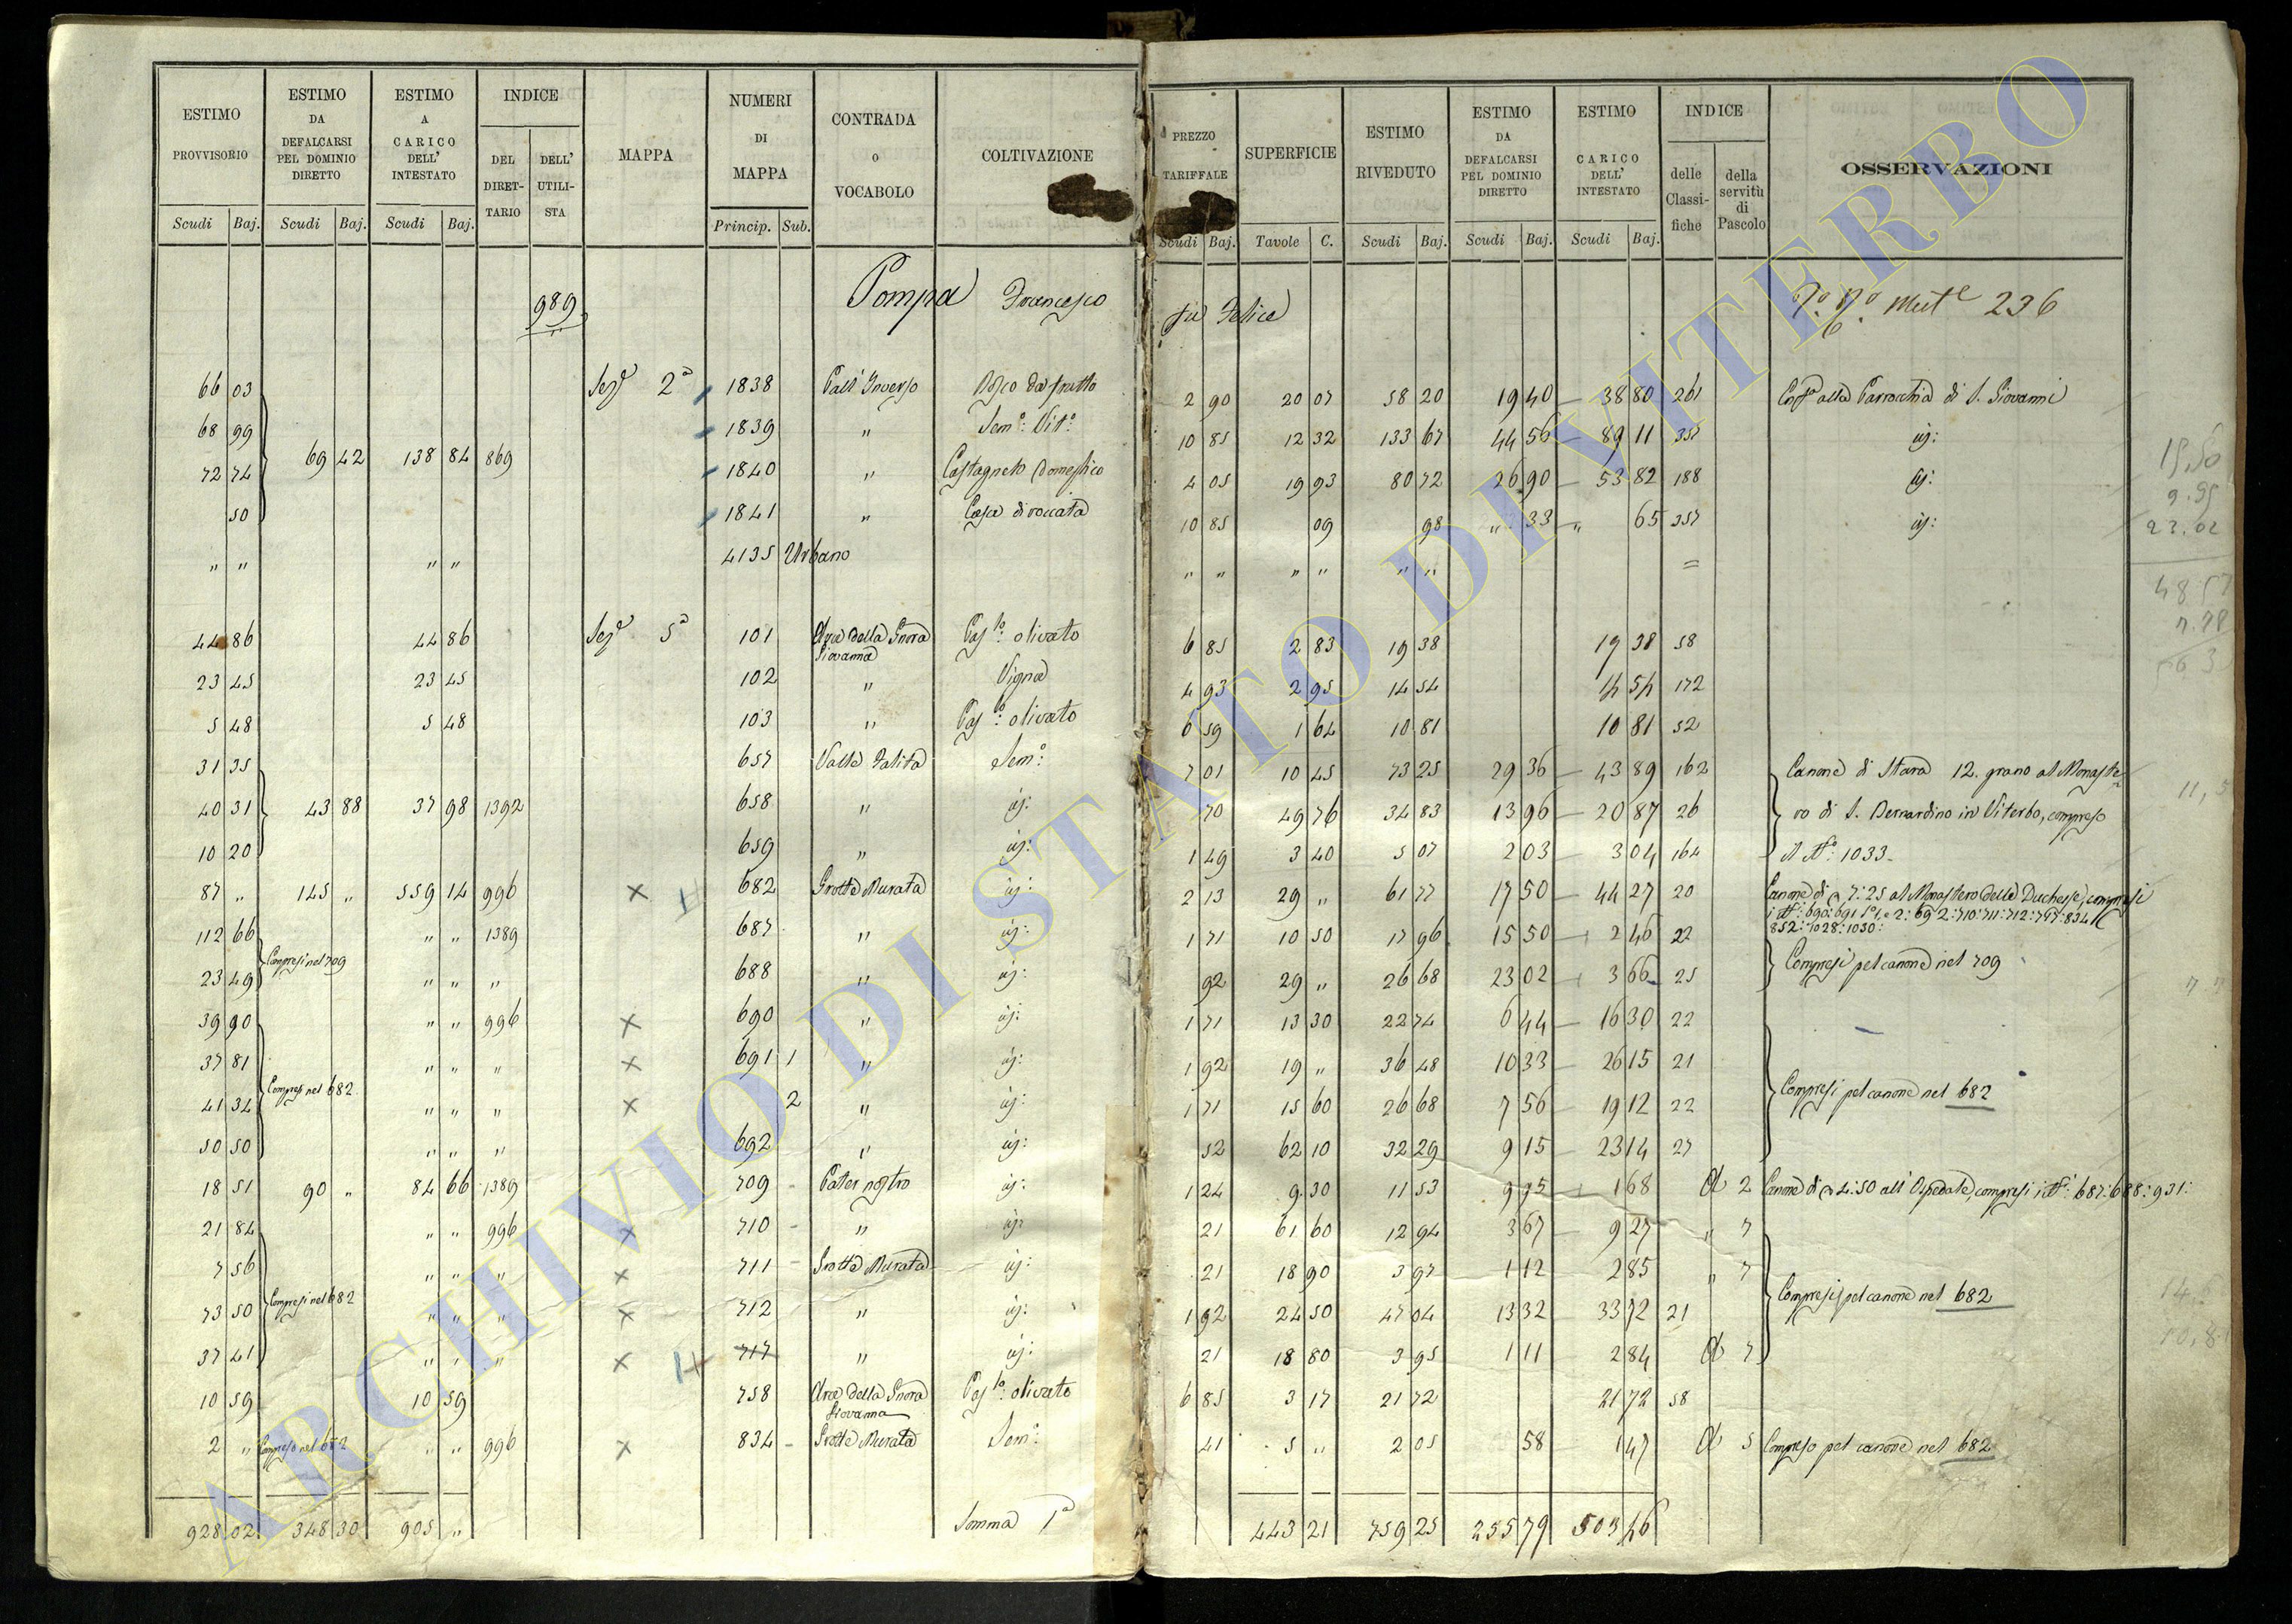 ESTIMO PROVVISORIO Scudi Baj. ESTIMO DA DEFALCARSI PEL DOMINIO DIRETTO Scudi Baj. ESTIMO A CARICO DELL' INTESTATO Scudi Baj. INDICE DEL DIRET-TARIO DELL' UTILI-STA MAPPA NUMERI DI MAPPA Princip. Sub. CONTRADA O VOCABOLO COLTIVAZIONE
PREZZO TARIFFALE Scudi Baj. SUPERFICIE Tavole C. ESTIMO RIVEDUTO Scudi Baj. ESTIMO DA DEFALCARSI PEL DOMINIO DIRETTO Scudi Baj. ESTIMO A CARICO DELL' INTESTATO Scudi Baj. INDICE delle Classi-fiche della servitù di Pascolo OSSERVAZIONI
989 Pompa Francesco fu Felice 236
66 03 Sezᵉ 2ª 1838 Vall' Inverso Bosco da frutto 2 90 20 07 58 20 19 40 38 80 261 alla Parrocchia di S. Giovanni
68 99 1839 " Semº: Vitº: 10 85 12 32 133 67 44 56 89 11 357 iɉ:
72 74 69 42 138 84 869 1840 " Castagneto Domestico 4 05 19 93 80 72 26 90 53 82 188 iɉ:
50 1841 " Casa diroccata 10 85 09 98 " 33 " 65 357 iɉ:
" " " " 4135 Urbano " " " " " " =
44 86 44 86 Sezᵉ 5ª 101 Ara della Gnora Giovanna Pasᵗᵒ: olivato 6 85 2 83 19 38 19 38 58
23 45 23 45 102 " Vigna 4 93 2 95 14 54 14 54 172
5 48 5 48 103 " Pasᵗᵒ: olivato 6 59 1 64 10 81 10 81 52
31 35 657 Valle Semº: 7 01 10 45 73 25 29 36 43 89 162 Canone di Stara 12. grano al Monaste-
40 31 43 88 37 98 1392 658 " iɉ: 70 49 76 34 83 13 96 20 87 26 ro di S. Bernardino in Viterbo, compreso
10 20 659 " iɉ: 1 49 3 40 5 07 2 03 3 04 164 il Nº: 1033
87 " 145 " 559 14 996 × 682 Grotta Murata iɉ: 2 13 29 " 61 77 17 50 44 27 20 Canone di 7:25 al Monastero della Duchessa, compresi
i Nⁱ: 690: 691 1º, e 2: 692: 710: 711: 712: 717: 834
852: 1028: 1030:
112 66 " " 1389 687 " iɉ: 1 71 10 50 17 96 15 50 2 46 22
Compresi nel 709 Compresi pel canone nel 709
23 49 " " " 688 " iɉ: 92 29 " 26 68 23 02 3 66 25
39 90 " " 996 × 690 " iɉ: 1 71 13 30 22 74 6 44 16 30 22
37 81 " " " × 691 1 " iɉ: 1 92 19 " 36 48 10 33 26 15 21
Compresi nel 682 Compresi pel canone nel 682
41 34 " " " × 2 " iɉ: 1 71 15 60 26 68 7 56 19 12 22
50 50 " " " 692 " iɉ: 52 62 10 32 29 9 15 23 14 27
18 51 90 " 84 66 1389 709 Pater nostro iɉ: 1 24 9 30 11 53 9 95 1 68 2 Canone di 4:50 all' Ospedale, compresi i Nⁱ: 687: 688: 931:
21 84 " " 996 × 710 " iɉ: 21 61 60 12 94 3 67 9 27 " 7
7 56 " " " × 711 Grotta Murata iɉ: 21 18 90 3 97 1 12 2 85 " 7
73 50 Compresi nel 682 " " " × 712 " iɉ: 1 92 24 50 47 04 13 32 33 72 21 Compresi pel canone nel 682
37 41 " " " × 717 " iɉ: 21 18 80 3 95 1 11 2 84 7
10 59 10 59 758 Ara della Gnora Giovanna Pasᵗᵒ: olivato 6 85 3 17 21 72 21 72 58
2 " Compreso nel 682 " " 996 × 834 Grotta Murata Semº: 41 5 " 2 05 58 1 47 5 Compreso pel canone nel 682
928 02 348 30 905 " Somma 1ª 443 21 759 25 255 79 503 46
ARCHIVIO DI STATO DI VITERBO